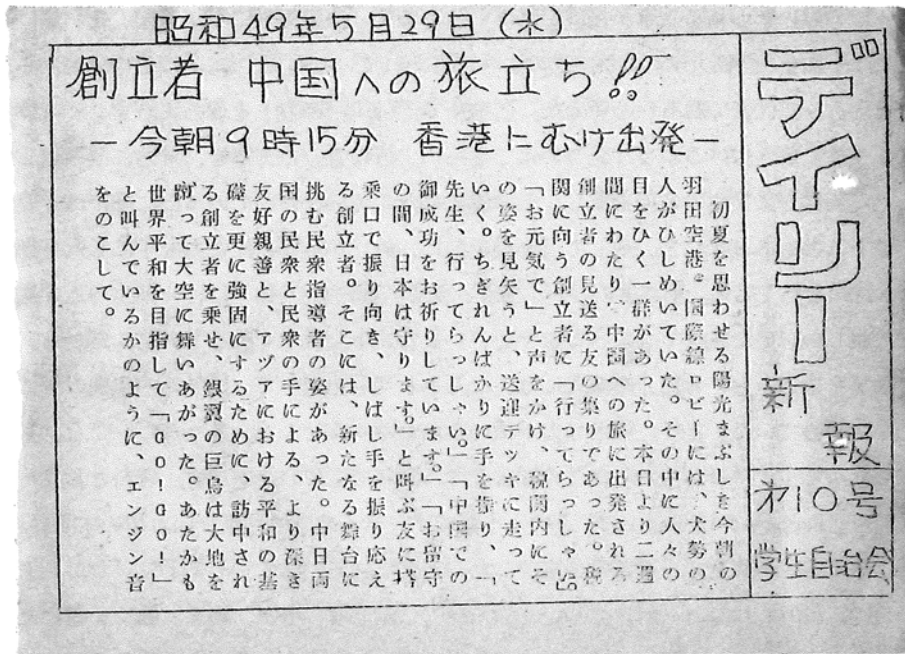 昭和49年5月29日(水)
デイリー
新報
才10号
学生自治会
創立者 中国への旅立ち!!
－今朝9時15分 香港にむけ出発－
初夏を思わせる陽光まぶしを今朝の
羽田空港。国際線ロビーには、大勢の
人がひしめいていた。その中に人々の
目をひく一群があった。本日より二週
間にわたり、中国への旅に出発される
創立者の見送る友の集りであった。税
関に向う創立者に「行ってらっしゃい」
「お元気で」と声をかけ、税関内にそ
の姿を見失うと、送迎デッキに走って
いく。ちぎれんばかりに手を振り、「
先生、行ってらっしゃい。」「中国での
御成功をお祈りしています。」「お留守
の間、日本は守ります。」と叫ぶ友に搭
乗口で振り向き、しばし手を振り応え
る創立者。そこには、新たなる舞台に
挑む民衆指導者の姿があった。中日両
国の民衆と民衆の手による、より深き
友好親善と、アヅアにおける平和の基
礎を更に強固にするために、訪中され
る創立者を乗せ、銀翼の巨鳥は大地を
蹴って大空に舞いあがった。あたかも
世界平和を目指して「GO!GO!」
と叫んでいるかのように、エンジン音
をのこして。